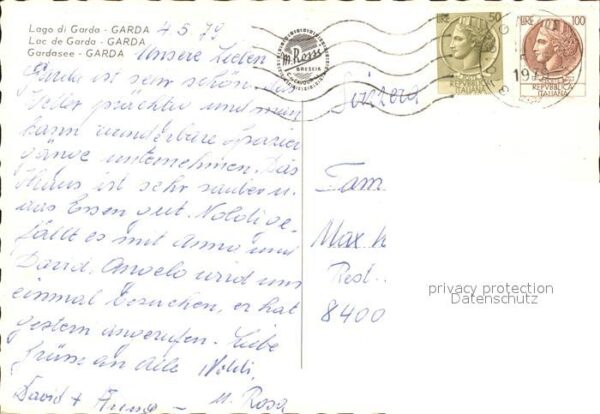 Lago di Garda - GARDA
Lac de Garda - GARDA
Gardasee - GARDA
4.5.79
Unsere Lieben
Garda ist sehr schön, das
prächtig und man
kann wunderbare Spazier
gänge unternehmen. Das
Haus ist sehr sauber u.
das Essen gut. Noldi ge-
fällt es mit Anna und
David. Angelo wird uns
einmal besuchen, er hat
gestern angerufen. Liebe
Grüsse an alle Noldi,
David + - u. Rosa
BRESCIA
LIRE 50
ITALIANA
LIRE 100
REPVBBLICA
ITALIANA
Svizzera
Fam
Max
Rest.
8400
privacy protection
Datenschutz